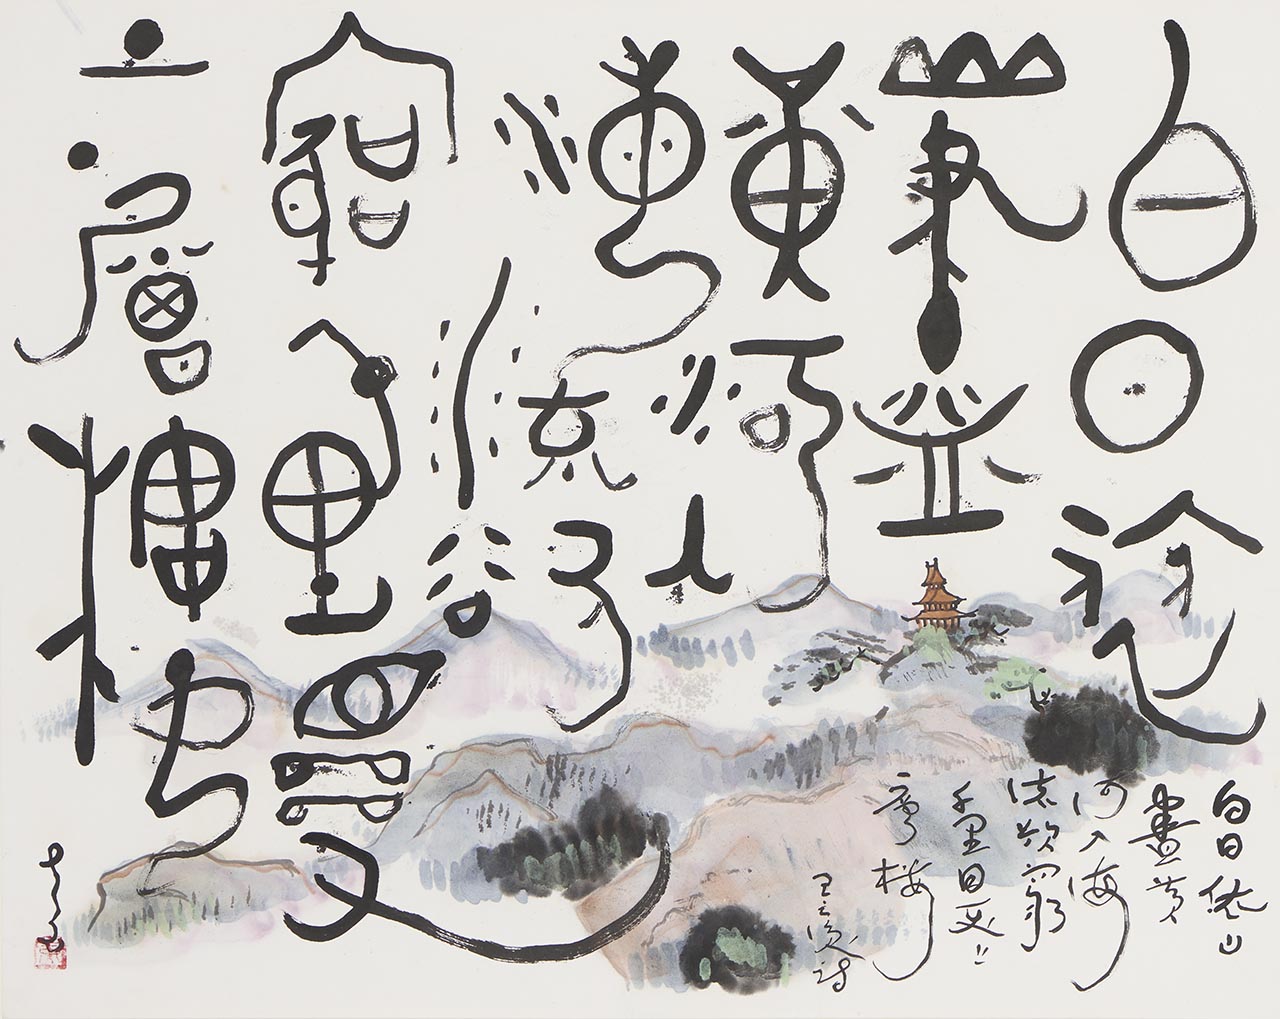 白日依
山盡
黃河入
海流欲
窮千里目更
上一層樓
白日依山
盡黃
河入海
流欲窮
千里目更上
層楼
王之渙詩